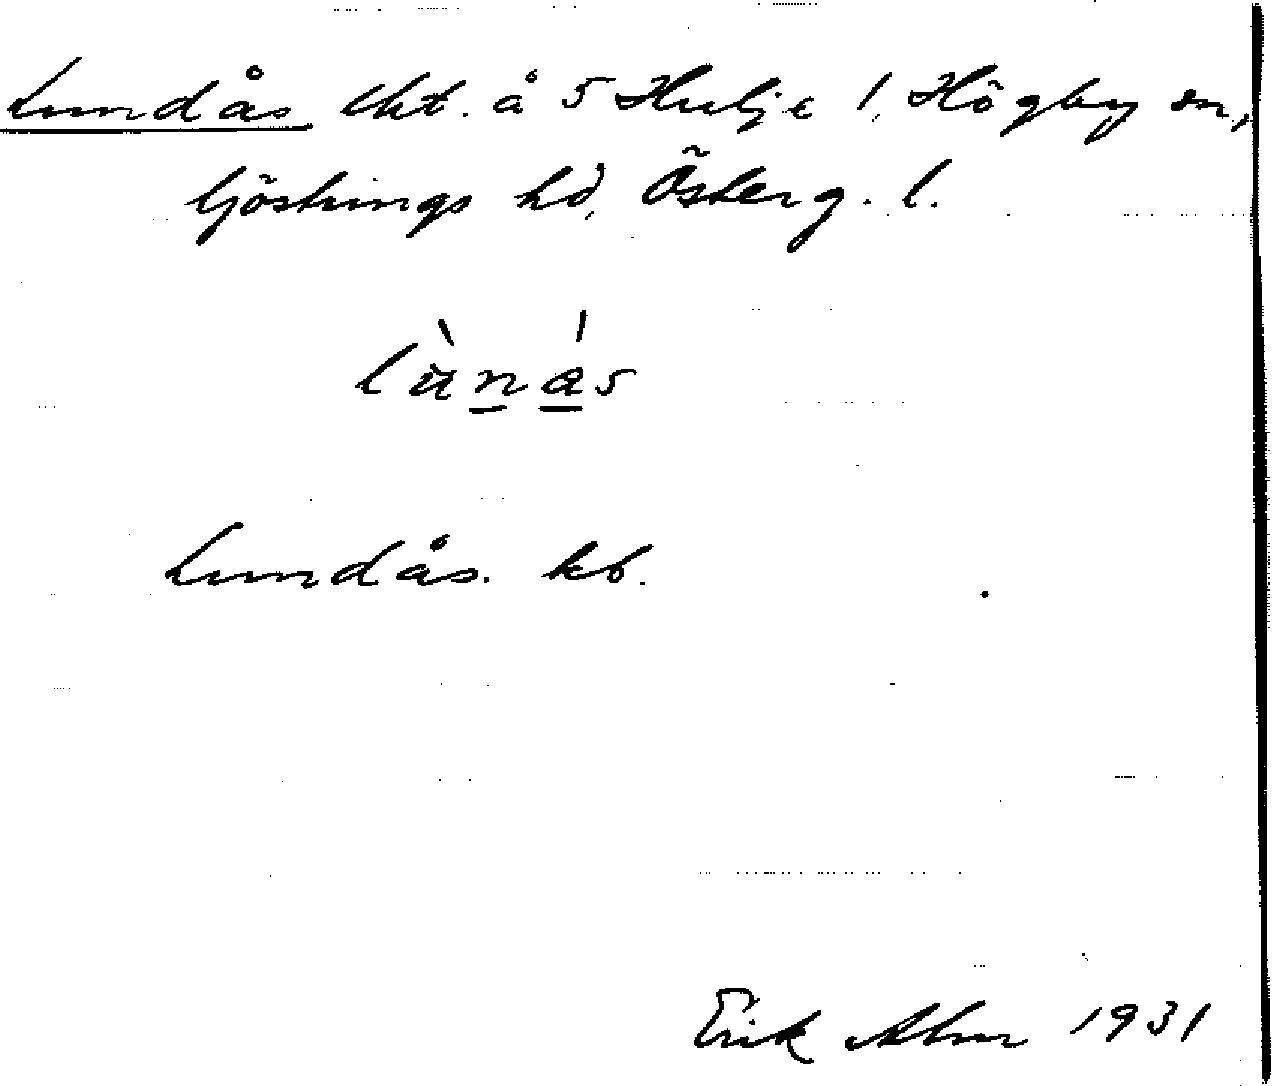 Lundås lht. å 5 Hulje 1, Högby sn,
Göstrings hd, Österg. l.
lu̇̀na̲s
Lundås. kb.
Erik Alm 1931